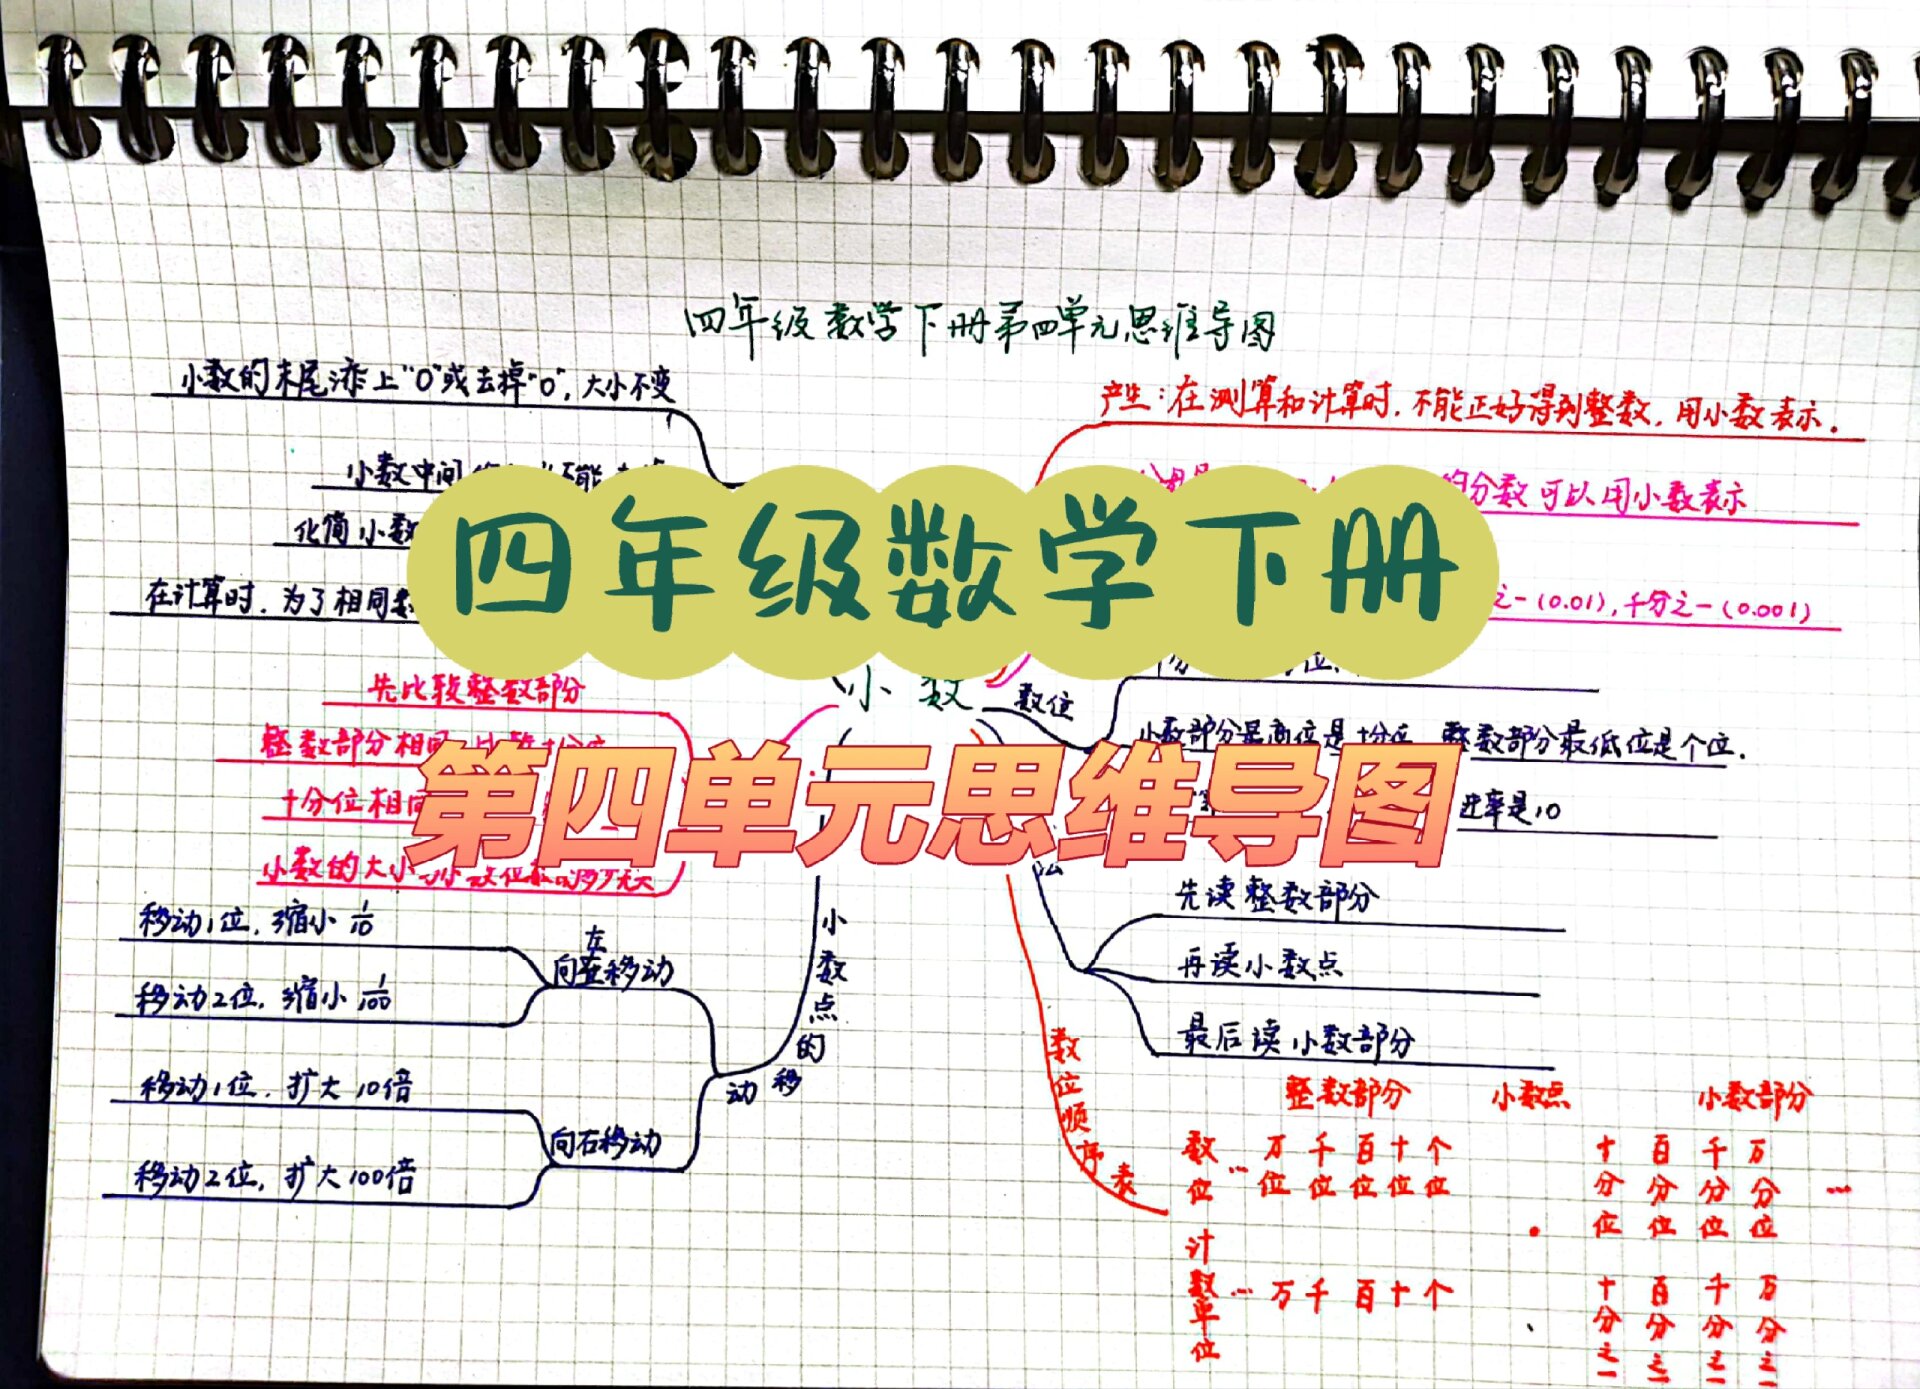 四年级数学下册第四单元思维导图
小数的末尾添上"0"或去掉"0",大小不变
小数中间
化简小数
在计算时,为了相同数
先比较整数部分
整数部分相同
十分位相同
小数的大小与小数位数的多少无关
移动1位,缩小 1/10
移动2位,缩小 1/100
向左移动
移动1位,扩大10倍
移动2位,扩大100倍
向右移动
小数点的移动
四年级数学下册
第四单元思维导图
小数
产生:在测算和计算时,不能正好得到整数,用小数表示.
的分数可以用小数表示
之一(0.01),千分之一(0.001)
数位
小数部分最高位是十分位 整数部分最低位是个位.
进率是10
先读整数部分
再读小数点
最后读小数部分
数位顺序表
整数部分 小数点 小数部分
数位 … 万位 千位 百位 十位 个位 . 十分位 百分位 千分位 万分位 …
计数单位 … 万 千 百 十 个 十分之一 百分之一 千分之一 万分之一